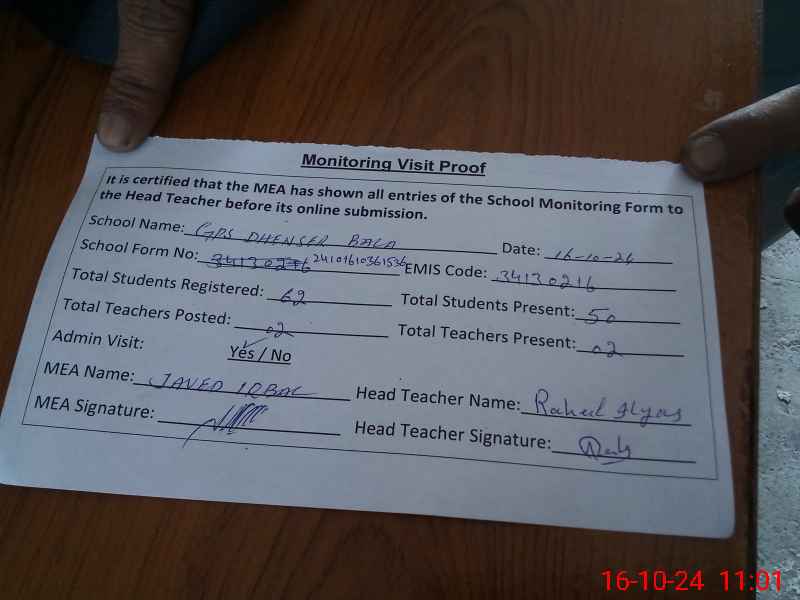 Monitoring Visit Proof
It is certified that the MEA has shown all entries of the School Monitoring Form to
the Head Teacher before its online submission.
School Name: GPS DHENSER BALA Date: 16-10-24
School Form No: 34130216 24101610361536 EMIS Code: 34130216
Total Students Registered: 62 Total Students Present: 50
Total Teachers Posted: 02 Total Teachers Present: 02
Admin Visit: Yes / No
MEA Name: JAVED IQBAL Head Teacher Name: Raheel Ilyas
MEA Signature: Head Teacher Signature:
16-10-24 11:01